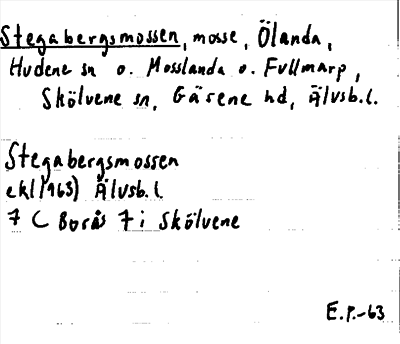 Stegabergsmossen, mosse, Ölanda,
Hudene sn o. Mosslanda o. Fullmarp,
Skölvene sn, Gäsene hd, Älvsb. l.
Stegabergsmossen
ekl (1963) Älvsb. l.
7 C Borås 7 i Skölvene
E.P.-63